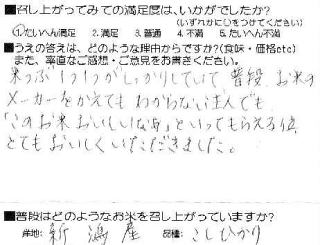 ■召し上がってみての満足度は、いかがでしたか?
(いずれかに○をつけてください)
①たいへん満足 2.満足 3.普通 4.不満 5.たいへん不満
■うえの答えは、どのような理由からですか?(食味・価格etc)
また、率直なご感想・ご意見をお書きください。
米つぶ1つ1つがしっかりしていて、普段、お米の
メーカーをかえてもわからない主人でも
「このお米おいしいなあ」といってもらえる位、
とてもおいしくいただきました。
■普段はどのようなお米を召し上がっていますか?
産地: 新潟産 品種: こしひかり